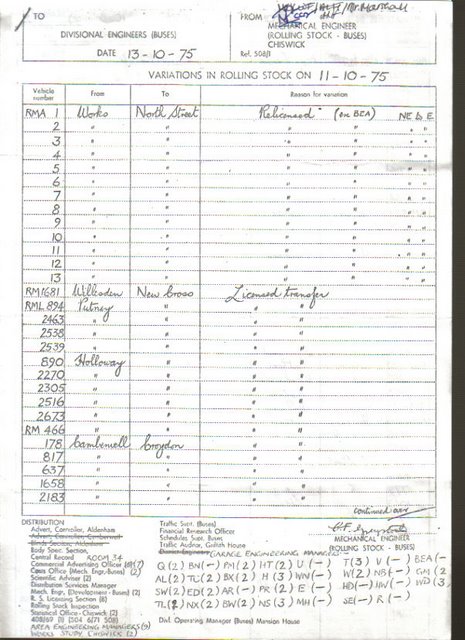 TO
FROM
MECHANICAL ENGINEER
(ROLLING STOCK - BUSES)
CHISWICK
DIVISIONAL ENGINEERS (BUSES)
DATE 13-10-75
Ref. 508/1
VARIATIONS IN ROLLING STOCK ON 11-10-75
Vehicle number From To Reason for variation
RMA 1 Works North Street Relicensed (on BEA) NE & E.
2 " " " " " "
3 " " " " " "
4 " " " " " "
5 " " " " " "
6 " " " " " "
7 " " " " " "
8 " " " " " "
9 " " " " " "
10 " " " " " "
11 " " " " " "
12 " " " " " "
13 " " " " " "
RM 1681 Willesden New Cross Licensed transfer
RML 894 Putney " " "
2463 " " " "
2538 " " " "
2539 " " " "
890 Holloway " " "
2270 " " " "
2305 " " " "
2516 " " " "
2673 " " " "
RM 466 " " " "
178 Camberwell Croydon " "
817 " " " "
637 " " " "
1658 " " " "
2183 " " " "
continued over
DISTRIBUTION
Advert, Controller, Aldenham
Advert, Controller, Camberwell
Body Spec. Section.
Central Record ROOM 34
Commercial Advertising Officer
Cars Office (Mech. Engr. Buses) (2)
Scientific Adviser (2)
Distribution Services Manager
Mech. Engr. (Development - Buses) (2)
R. S. Licensing Section (8)
Rolling Stock Inspection
Statistical Office - Chiswick (2)
AREA ENGINEERING MANAGERS (9)
WORKS STUDY CHISWICK (2)
Traffic Supt. (Buses)
Financial Research Officer
Schedules Supt. Buses
Traffic Auditor, Griffith House
GARAGE ENGINEERING MANAGERS
MECHANICAL ENGINEER
(ROLLING STOCK - BUSES)
Q (2) BN (-) PM (2) HT (2) U (-) T (3) V (-) BEA -
AL (2) TL (2) BX (2) H (3) WN (-) W (2) NB (-) GM (2
SW (2) ED (2) AR (-) PR (2) E (-) HD (-) HW (-) WD (3)
TL (2) NX (2) BW (2) NS (3) MH (-) SE (-) R (-)
Divl. Operating Manager (Buses) Mansion House